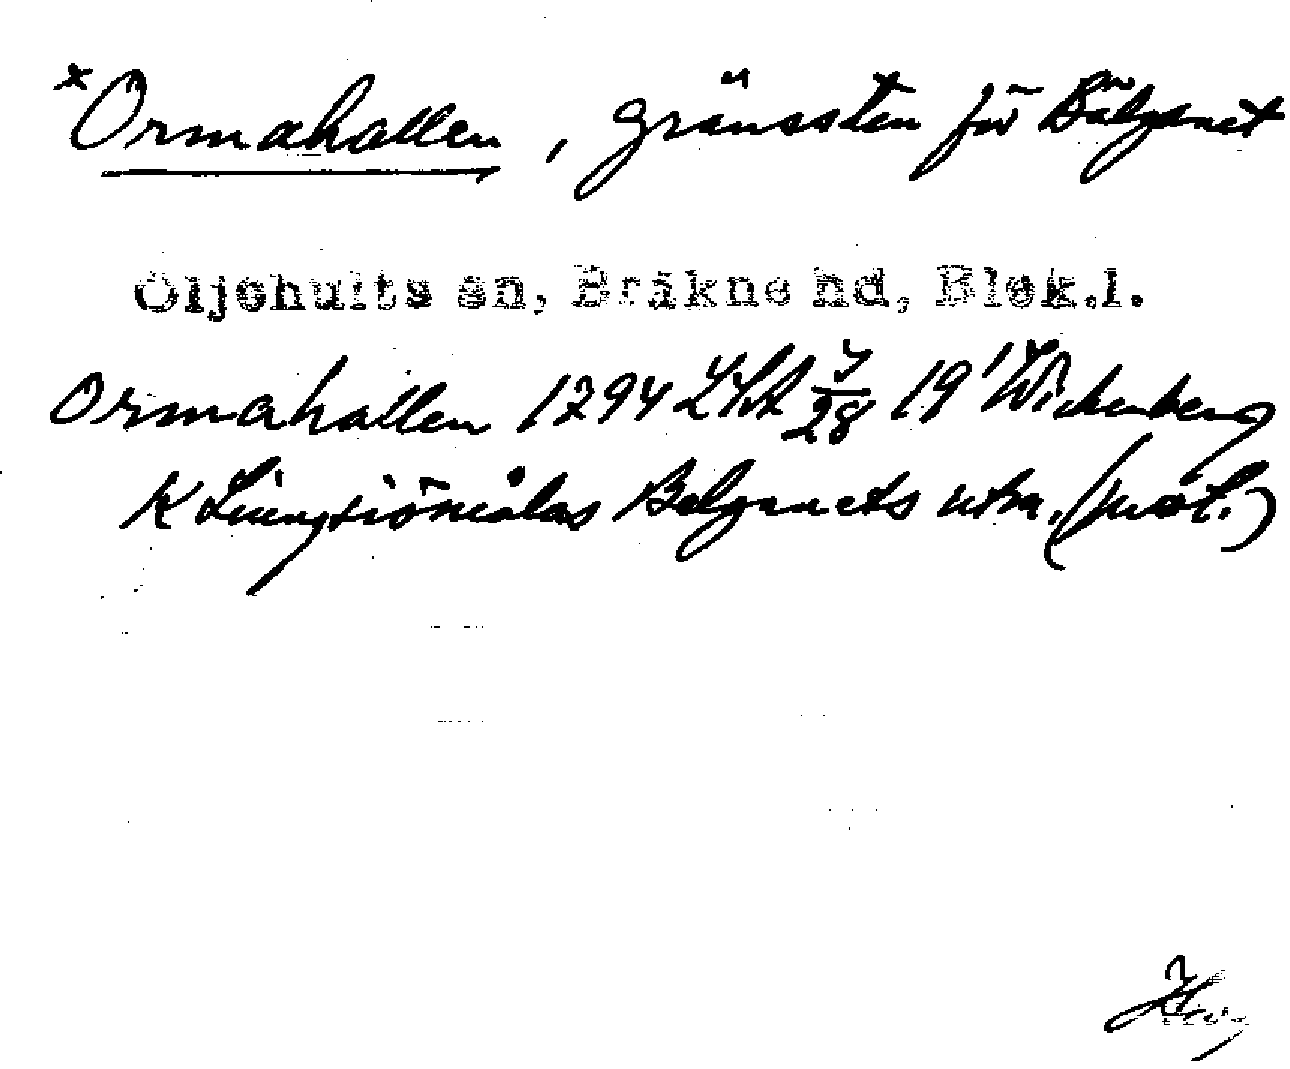 *Ormahallen, gränssten för Bälganet
Öljehults sn, Bräkne hd, Blek.l.
Ormahallen 1794 LSA 7/28 19' Wickenberg
K Liungsiömålas Belganets utm. (prot.)